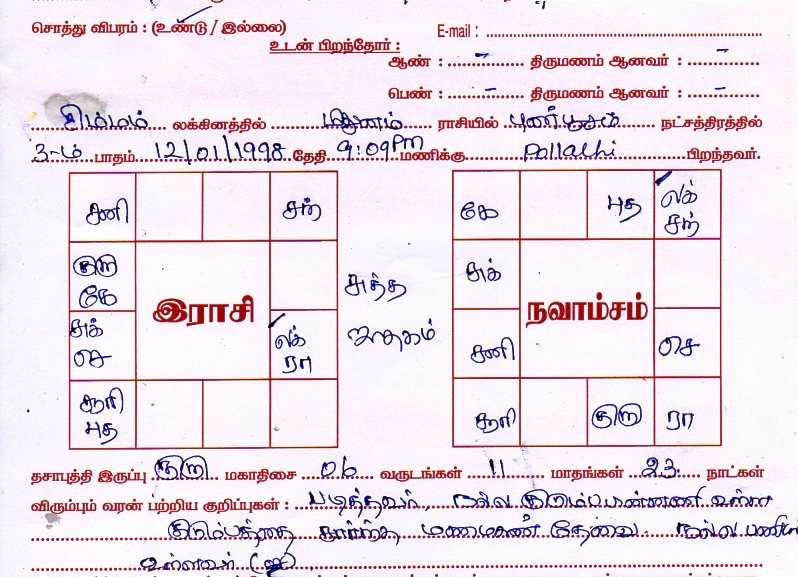 சொத்து விபரம் : (உண்டு / இல்லை) E-mail :
உடன் பிறந்தோர் :
ஆண் : – திருமணம் ஆனவர் : –
பெண் : – திருமணம் ஆனவர் : –
சிம்மம் லக்கினத்தில் மிதுனம் ராசியில் புனர்பூசம் நட்சத்திரத்தில்
3-ம் பாதம் 12/01/1998 தேதி 9:09PM மணிக்கு Pollachi பிறந்தவர்.
சனி சந் கே புத லக் சந்
குரு கே சுத்த சுக்
இராசி ஜாதகம் நவாம்சம்
சுக் செ லக் ரா சனி செ
சூரி புத சூரி குரு ரா
தசாபுத்தி இருப்பு குரு மகாதிசை 06 வருடங்கள் 11 மாதங்கள் 23 நாட்கள்
விரும்பும் வரன் பற்றிய குறிப்புகள் : படித்தவர், நல்ல குடும்ப உள்ள
குடும்பத்தை சார்ந்த மணமகன் தேவை. நல்ல பணி
உள்ளவர்